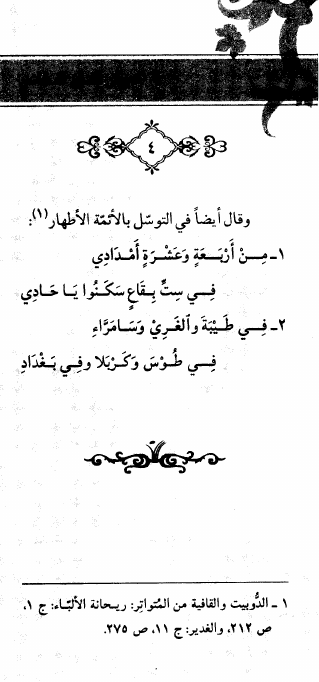 ٤
وقال أيضاً في التوسّل بالأئمّة الأطهار(١):
١ـ مِـنْ أَرْبَـعَةٍ وَعَشْـرَةٍ أَمْـدَادِي
فِـي سِتِّ بِـقَاعٍ سَكَـنُوا يَـا حَـادِي
٢ـ فِـي طَـيْبَةَ والْغَرِيْ وَسَـامَرَّاءِ
فِـي طُـوْسَ وَكَـرْبَلا وفِـي بَـغْدَادِ
١ ـ الدُّوبيت والقافية من المُتواتِر: ريـحانة الألبّـاء: ج ١،
ص ٢١٢، والغدير: ج ١١، ص ٢٧٥.